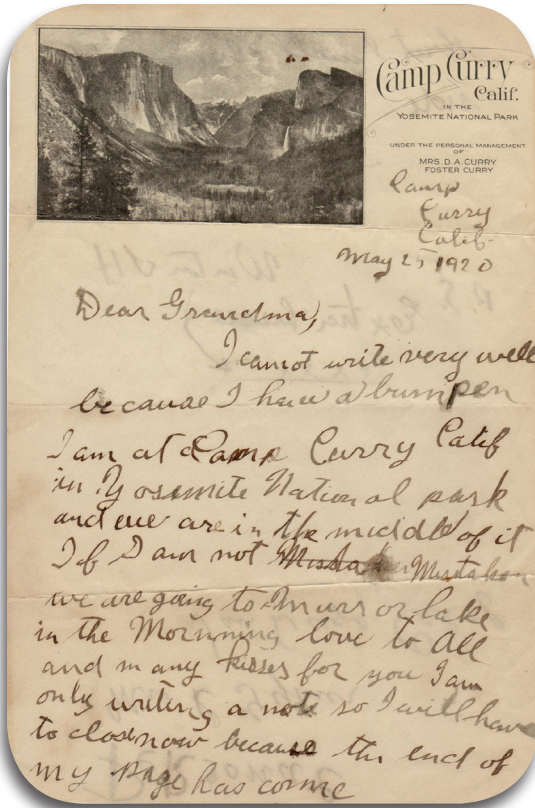 Camp Curry
Calif.
IN THE
YOSEMITE NATIONAL PARK
UNDER THE PERSONAL MANAGEMENT
OF
MRS. D. A. CURRY
FOSTER CURRY
Camp
Curry
Calif-
May 25 1920
Dear Grandma,
I cannot write very well
because I have a bum pen
I am at Camp Curry Calif
in Yosemite National park
and we are in the middle of it
If I am not Mistaken
we are going to Murror lake
in the Mornning love to All
and many kisses for you I am
only writing a note so I will have
to close now because the end of
my page has come